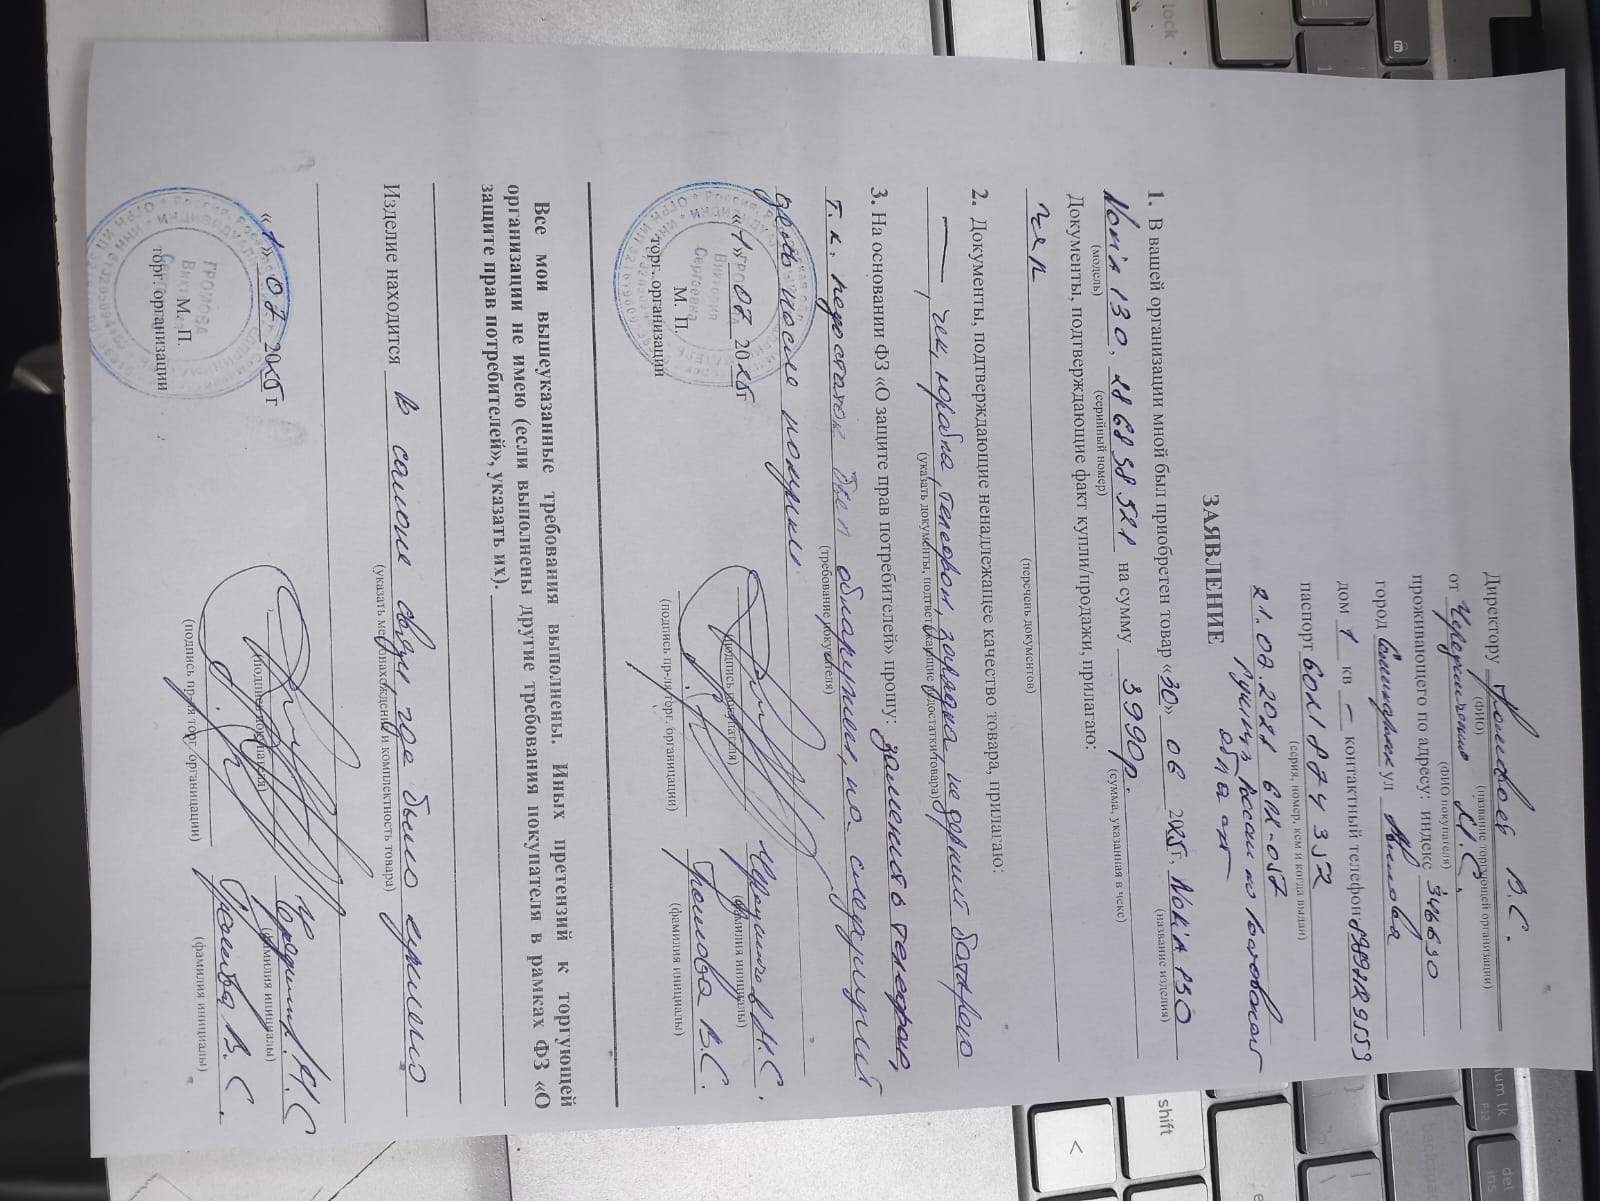 Директору Громовой В.С.
(ФИО) (название торгующей организации)
от М.С.
(ФИО покупателя)
проживающего по адресу: индекс 346630
город Семикаракорск ул
дом 1 кв – контактный телефон
паспорт 6021 874357
(серия, номер, кем и когда выдан)
21.02.2021 612-057
России по Ростовской
ЗАЯВЛЕНИЕ
1. В вашей организации мной был приобретен товар «30» 06 2025г, Nokia 130
(название изделия)
Nokia 130, на сумму 3990р.
(модель) (серийный номер) (сумма, указанная в чеке)
Документы, подтверждающие факт купли/продажи, прилагаю:
чек
(перечень документов)
2. Документы, подтверждающие ненадлежащее качество товара, прилагаю:
— , чек, коробка, телефон, зарядка, не держит батарею
(указать документы, подтверждающие недостатки товара)
3. На основании ФЗ «О защите прав потребителей» прошу: заменить телефон,
т.к. недостаток был обнаружен, на следующий
(требование покупателя)
день после покупки
«1» 07 2025г
(подпись покупателя) (фамилия инициалы)
М. П. Громова В.С.
торг. организации (подпись пр-ля торг. организации) (фамилия инициалы)
Все мои вышеуказанные требования выполнены. Иных претензий к торгующей
организации не имею (если выполнены другие требования покупателя в рамках ФЗ «О
защите прав потребителей», указать их).
Изделие находится в салоне связи где было куплено
(указать местонахождение и комплектность товара)
«1» 07 2025 г М.С
(подпись покупателя) (фамилия инициалы)
М. П. Громова В.С.
торг. организации (подпись пр-ля торг. организации) (фамилия инициалы)
ГРОМОВА
Виктория
Сергеевна